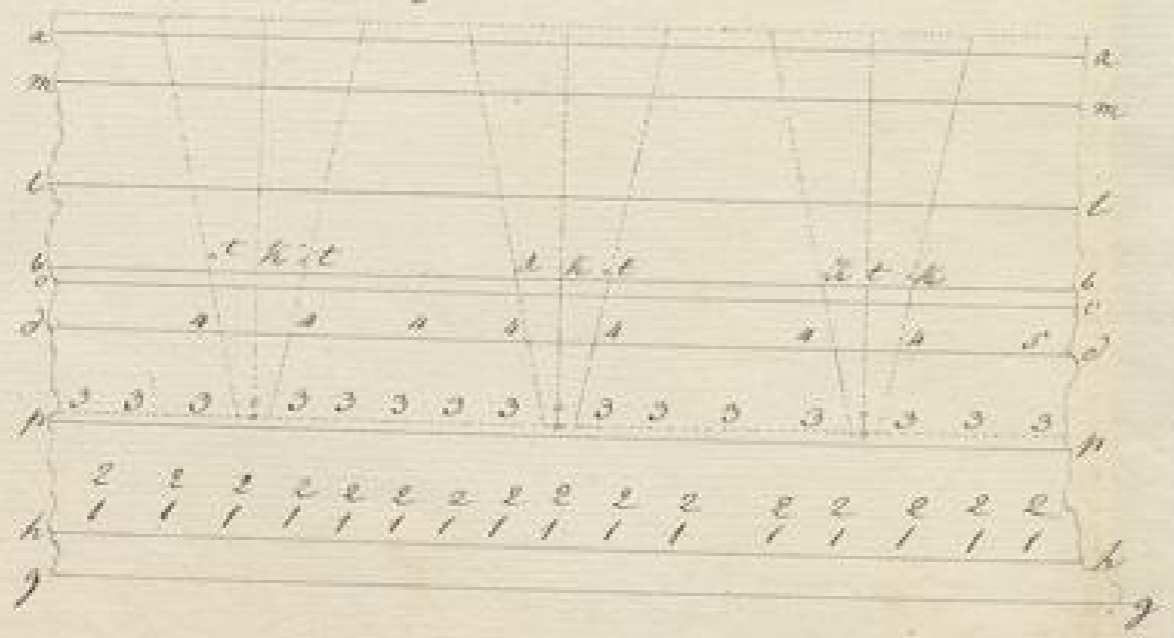 a a
m m
l l
t k t t k t k t k
b b
c c
4 4 4 4 4 4 4 5
d d
3 3 3 3 3 3 3 3 3 3 3 3 3 3 3
p p
2 2 2 2 2 2 2 2 2 2 2 2 2 2 2 2
1 1 1 1 1 1 1 1 1 1 1 1 1 1 1 1
h h
g g